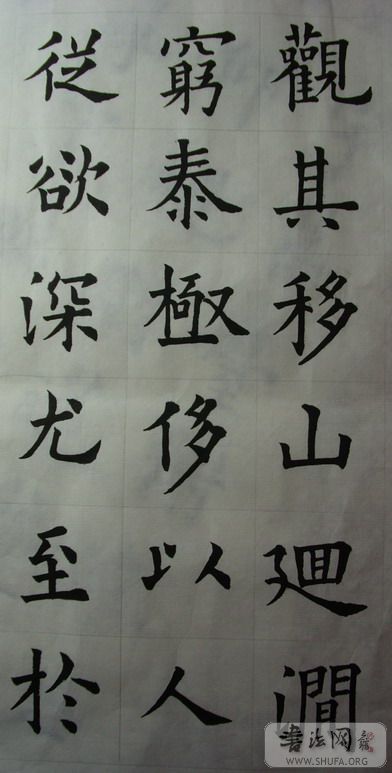 觀其移山廻澗
窮泰極侈以人
従欲深尤至於
書法网
WWW.SHUFA.ORG